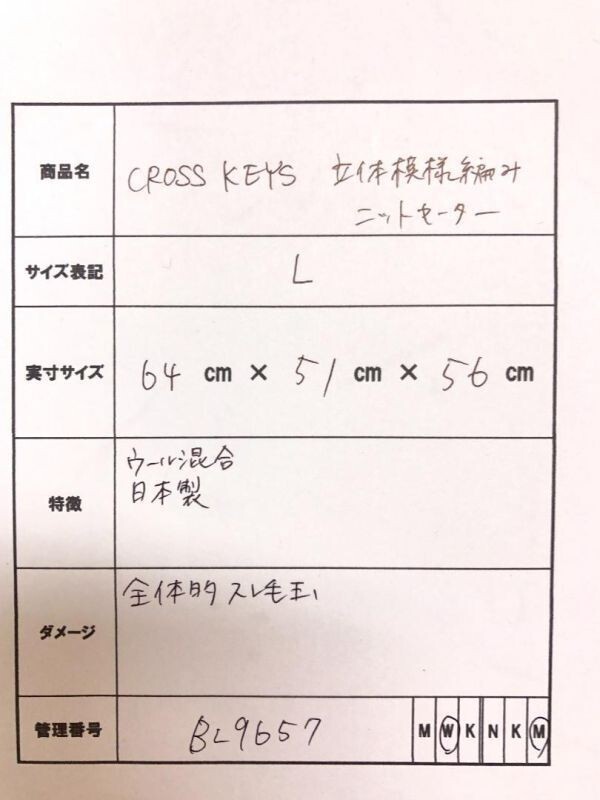 商品名 CROSS KEYS 立体模様編み
ニットセーター
サイズ表記 L
実寸サイズ 64 cm × 51 cm × 56 cm
特徴 ウール混合
日本製
ダメージ 全体的スレ毛玉
管理番号 BL9657 M W K N K M